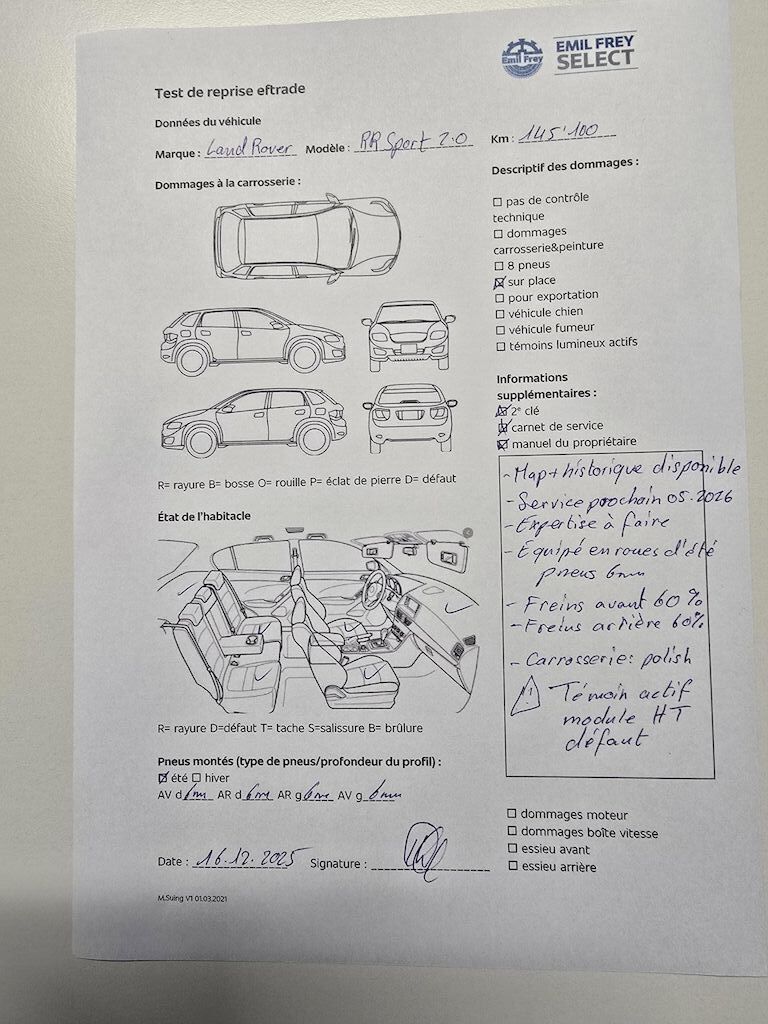 Emil Frey
EMIL FREY
SELECT
Test de reprise eftrade
Données du véhicule
Marque : Land Rover Modèle : RR Sport 2.0 Km : 145'100
Dommages à la carrosserie :
R= rayure B= bosse O= rouille P= éclat de pierre D= défaut
État de l'habitacle
R= rayure D=défaut T= tache S=salissure B= brûlure
Pneus montés (type de pneus/profondeur du profil) :
été hiver
AV d 6mm AR d 6mm AR g 6mm AV g 6mm
Date : 16.12.2025 Signature :
M.Suing V1 01.03.2021
Descriptif des dommages :
pas de contrôle
technique
dommages
carrosserie&peinture
8 pneus
sur place
pour exportation
véhicule chien
véhicule fumeur
témoins lumineux actifs
Informations
supplémentaires :
2e clé
carnet de service
manuel du propriétaire
- Map + historique disponible
- Service prochain 05.2026
- Expertise à faire
- Equipé en roues d'été
pneus 6mm
- Freins avant 60 %
- Freins arrière 60%
- Carrosserie: polish
! Témoin actif
module HT
défaut
dommages moteur
dommages boîte vitesse
essieu avant
essieu arrière